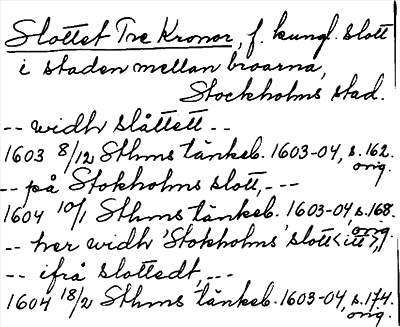 Slottet Tre Kronor, f. kungl. slott
i staden mellan broarna,
Stockholms stad.
-- widh slåttett --
1603 8/12 Sthms tänkeb. 1603-04, s. 162.
orig.
-- på Stokholms slott, ---
1604 10/1 Sthms tänkeb. 1603-04, s. 168.
orig.
-- her widh Stokholms slott<itt>,
-- ifrå slottedt, ---
1604 18/2 Sthms tänkeb. 1603-04, s. 174.
orig.